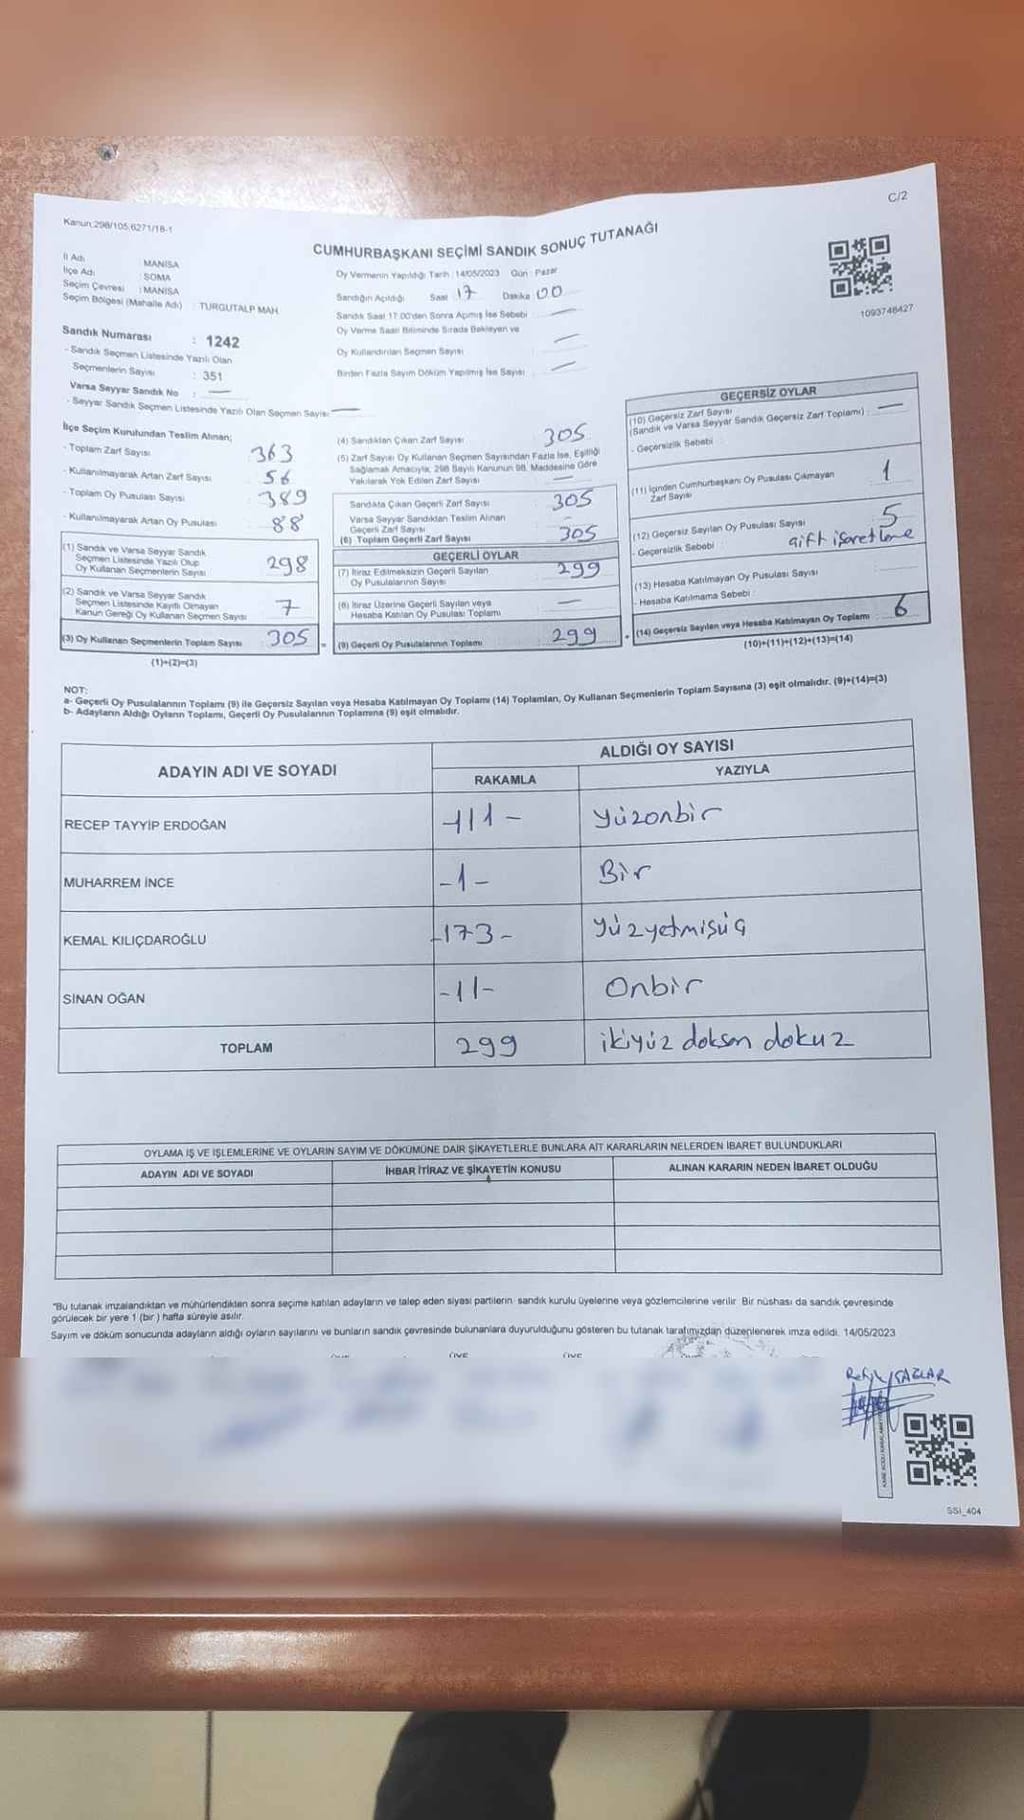 Kanun:298/105,6271/18-1
C/2
CUMHURBAŞKANI SEÇİMİ SANDIK SONUÇ TUTANAĞI
İl Adı MANİSA
İlçe Adı : SOMA
Seçim Çevresi : MANİSA
Seçim Bölgesi (Mahalle Adı) : TURGUTALP MAH.
Sandık Numarası : 1242
- Sandık Seçmen Listesinde Yazılı Olan
Seçmenlerin Sayısı : 351
Varsa Seyyar Sandık No : —
- Seyyar Sandık Seçmen Listesinde Yazılı Olan Seçmen Sayısı —
Oy Vermenin Yapıldığı Tarih : 14/05/2023 Gün : Pazar
Sandığın Açıldığı Saat 17 Dakika 00
Sandık Saat 17:00'den Sonra Açılmış İse Sebebi : —
Oy Verme Saati Bitiminde Sırada Bekleyen ve
Oy Kullandırılan Seçmen Sayısı : —
Birden Fazla Sayım Döküm Yapılmış İse Sayısı : —
1093748427
İlçe Seçim Kurulundan Teslim Alınan;
- Toplam Zarf Sayısı 363
- Kullanılmayarak Artan Zarf Sayısı 56
- Toplam Oy Pusulası Sayısı 389
- Kullanılmayarak Artan Oy Pusulası 88
(1) Sandık ve Varsa Seyyar Sandık
Seçmen Listesinde Yazılı Olup
Oy Kullanan Seçmenlerin Sayısı 298
(2) Sandık ve Varsa Seyyar Sandık
Seçmen Listesinde Kayıtlı Olmayan
Kanun Gereği Oy Kullanan Seçmen Sayısı 7
(3) Oy Kullanan Seçmenlerin Toplam Sayısı 305 =
(1)+(2)=(3)
(4) Sandıktan Çıkan Zarf Sayısı 305
(5) Zarf Sayısı Oy Kullanan Seçmen Sayısından Fazla İse, Eşitliği
Sağlamak Amacıyla, 298 Sayılı Kanunun 98. Maddesine Göre
Yakılarak Yok Edilen Zarf Sayısı —
Sandıkta Çıkan Geçerli Zarf Sayısı 305
Varsa Seyyar Sandıktan Teslim Alınan
Geçerli Zarf Sayısı —
(6) Toplam Geçerli Zarf Sayısı 305
GEÇERLİ OYLAR
(7) İtiraz Edilmeksizin Geçerli Sayılan
Oy Pusulalarının Sayısı 299
(8) İtiraz Üzerine Geçerli Sayılan veya
Hesaba Katılan Oy Pusulası Toplamı —
(9) Geçerli Oy Pusulalarının Toplamı 299 +
GEÇERSİZ OYLAR
(10) Geçersiz Zarf Sayısı
(Sandık ve Varsa Seyyar Sandık Geçersiz Zarf Toplamı) : —
- Geçersizlik Sebebi :
(11) İçinden Cumhurbaşkanı Oy Pusulası Çıkmayan
Zarf Sayısı 1
(12) Geçersiz Sayılan Oy Pusulası Sayısı 5
- Geçersizlik Sebebi : çift işaretleme
(13) Hesaba Katılmayan Oy Pusulası Sayısı :
- Hesaba Katılmama Sebebi :
(14) Geçersiz Sayılan veya Hesaba Katılmayan Oy Toplamı : 6
(10)+(11)+(12)+(13)=(14)
NOT:
a- Geçerli Oy Pusulalarının Toplamı (9) ile Geçersiz Sayılan veya Hesaba Katılmayan Oy Toplamı (14) Toplamları, Oy Kullanan Seçmenlerin Toplam Sayısına (3) eşit olmalıdır. (9)+(14)=(3)
b- Adayların Aldığı Oyların Toplamı, Geçerli Oy Pusulalarının Toplamına (9) eşit olmalıdır.
ADAYIN ADI VE SOYADI
ALDIĞI OY SAYISI
RAKAMLA YAZIYLA
RECEP TAYYİP ERDOĞAN -111- yüzonbir
MUHARREM İNCE -1- Bir
KEMAL KILIÇDAROĞLU -173- yüzyetmişüç
SİNAN OĞAN -11- Onbir
TOPLAM 299 ikiyüz doksan dokuz
OYLAMA İŞ VE İŞLEMLERİNE VE OYLARIN SAYIM VE DÖKÜMÜNE DAİR ŞİKAYETLERLE BUNLARA AİT KARARLARIN NELERDEN İBARET BULUNDUKLARI
ADAYIN ADI VE SOYADI İHBAR İTİRAZ VE ŞİKAYETİN KONUSU ALINAN KARARIN NEDEN İBARET OLDUĞU
*Bu tutanak imzalandıktan ve mühürlendikten sonra seçime katılan adayların ve talep eden siyasi partilerin sandık kurulu üyelerine veya gözlemcilerine verilir. Bir nüshası da sandık çevresinde
görülecek bir yere 1 (bir ) hafta süreyle asılır.
Sayım ve döküm sonucunda adayların aldığı oyların sayılarını ve bunların sandık çevresinde bulunanlara duyurulduğunu gösteren bu tutanak tarafımızdan düzenlenerek imza edildi. 14/05/2023
ÜYE ÜYE ÜYE
SSİ_404